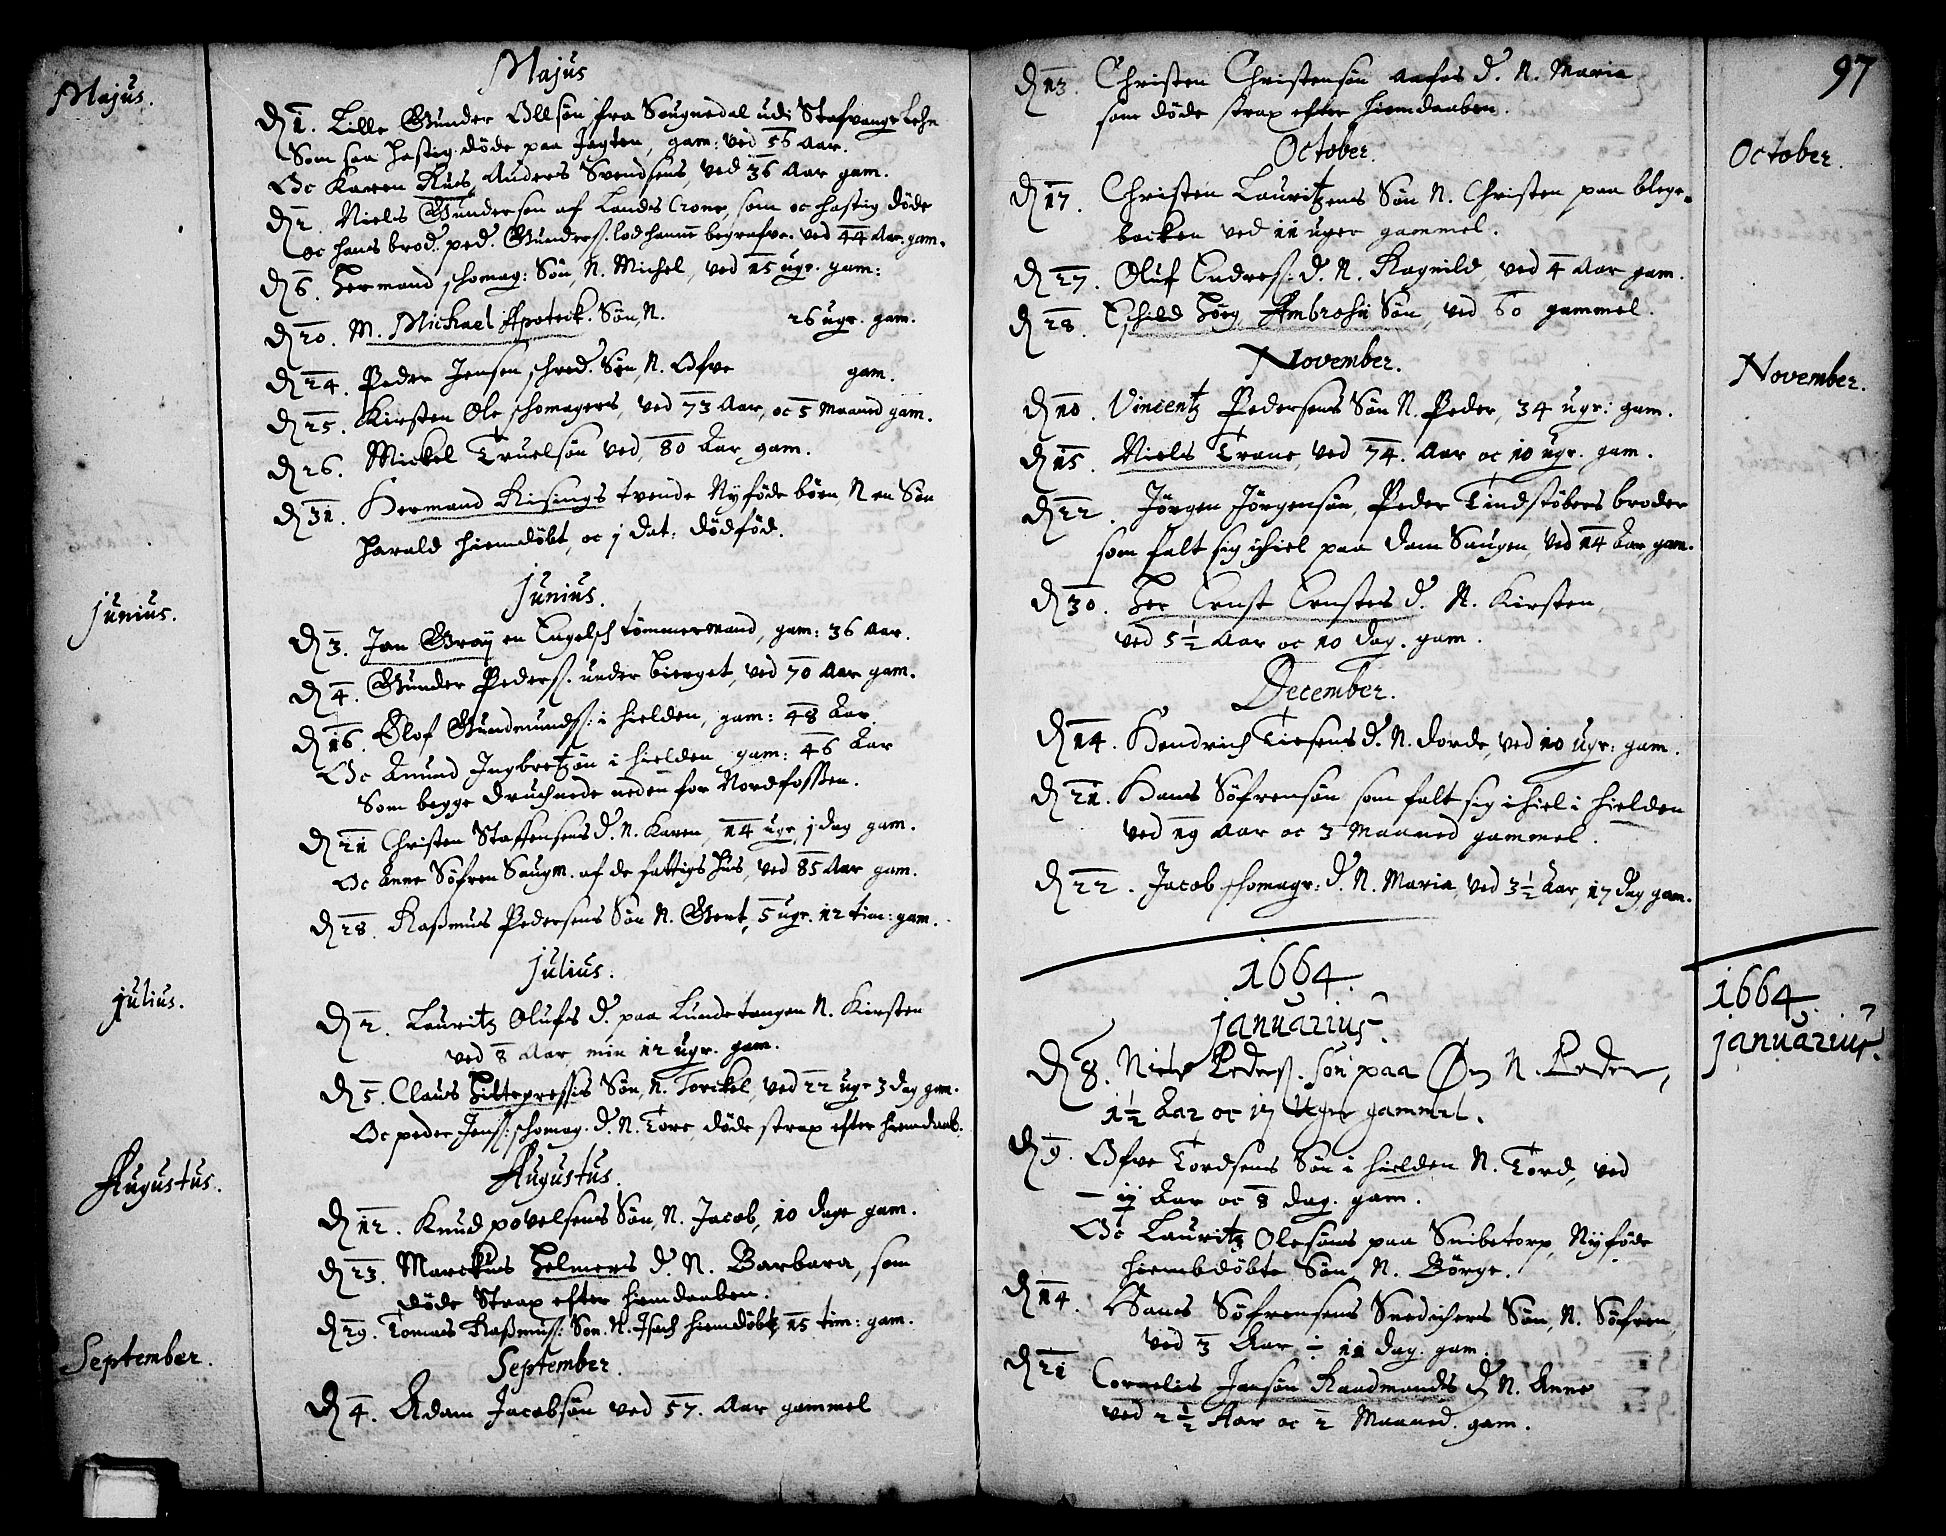 Majus.
Majus
D 1. Lille Gunder Ollsøn fra Sougnedal udi Stafvanger Lehn
Som saa hastig døde paa Jagten, gam: ved 56 Aar.
Oc Karen Anders Svendsens, ved 36 Aar gam.
D 2. Niels Gundersøn af Lands Crone, som oc hastig døde
oc hans brod. ped. Gunders. lod hannē begrafve. ved 44 Aar. gam.
D 6. Hermand schomag: Søn, N. Michel, ved 15 ugr. gam:
D 20. M. Michael Apoteck. Søn, N. 26 ugr. gam.
D 24. Peder Jensen schred. Søn, N. Ofve gam.
D 25. Kirsten Ole schomagers, ved 73 Aar, oc 5 Maaned gam.
D 26. Mickel Truelsøn ved, 80 Aar gam.
D 31. Hermand Risings tvende Nyføde børn, N en Søn
Harald hiemdøbt, oc j dat: dødfød.
Junius.
junius.
D 3. Jan Gray en Engelsch tømmermand, gam: 36 Aar.
D 4. Gunder Peders. under bierget, ved 70 Aar gam.
D 16. Olof Gundmunds: i hielden, gam: 48 Aar.
Oc Knud Ingbretzøn i hielden gam: 46 Aar
Som begge druchnede neden for Nordfossen.
D 21 Christen Staffensens D. N. Karen, 14 ugr, j dag gam.
Oc Anne Søfren Saugm. af de fattigs hus, ved 85 Aar gam.
D 28. Rasmus Pedersens Søn N. Gert, 5 ugr. 12 tim: gam.
julius.
julius.
D 2. Lauritz Olufs D. paa Lundetangen N. Kirsten
ved 8 Aar min 12 ugr. gam.
D 5. Claus Søn, N. Torckel, ved 22 ugr 3 dag gam.
Oc peder Jens: schomag. D. N. Tore, døde strax efter hiemdaab.
Augustus.
Augustus.
D 12. Knud povelsens Søn, N. Jacob, 10 dage gam.
D 23. Marckus Helmers D. N. Barbara, som
døde Strax efter hiemdaaben.
D 29. Tomas Rasmus: Søn. N. Isach hiemdøbt, 15 tim: gam.
September.
September.
D 4. Adam Jacobsøn ved 57. Aar gammel
97
D 13. Christen Christensøn D. N. Maria
som døde strax efter hiemdaaben.
October.
October.
D 17. Christen Lauritzens Søn N. Christen paa blege-
backen ved 11 uger gammel.
D 27. Oluf Endres: D. N. Ragnild, ved 4 Aar gam.
D 28. Eschild Ambrosii Søn, ved 60 gammel.
November.
November.
D 10. Vincentz Pedersens Søn N. Peder, 34 ugr: gam.
D 15. Niels Trane, ved 74. Aar oc 10 ugr. gam.
D 22. Jørgen Jørgensøn, Peder Tindstøbers broder
som falt sig ihiel paa dam Saugen, ved 14 Aar gam.
D 30. Her Ernst Ernstes D. N. Kirsten,
ved 5 1/2 Aar oc 10 dag. gam.
December.
D 14. Hendrich Tiesens D. N. dorde, ved 10 ugr: gam.
D 21. Hans Søfrensøn som falt sig ihiel i hielden
ved 19 Aar oc 3 Maaned gammel.
D 22. Jacob schomagr: D. N. Maria, ved 3 1/2 Aar, 17 dag gam.
1664.
januarius.
1664.
januarius.
D 8. Niels Peders. søn paa Øen N. Peder,
1 1/2 Aar oc 17 Uger gammel.
D 9. Ofve Tordsens Søn i hielden N. Tord, ved
– ij Aar oc 8 dag. gam.
Oc Lauritz Olesøns paa Snibetorp, Nyføde
hiembdøbte Søn N. Børge.
D 14. Hans Søfrensens Snedichers Søn, N. Søfren,
ved 3 Aar ÷ 11 dag. gam.
D 21 Cornelis Jansøn Raadmands D N. Anne
ved 2 1/2 Aar oc 2 Maaned. gam.